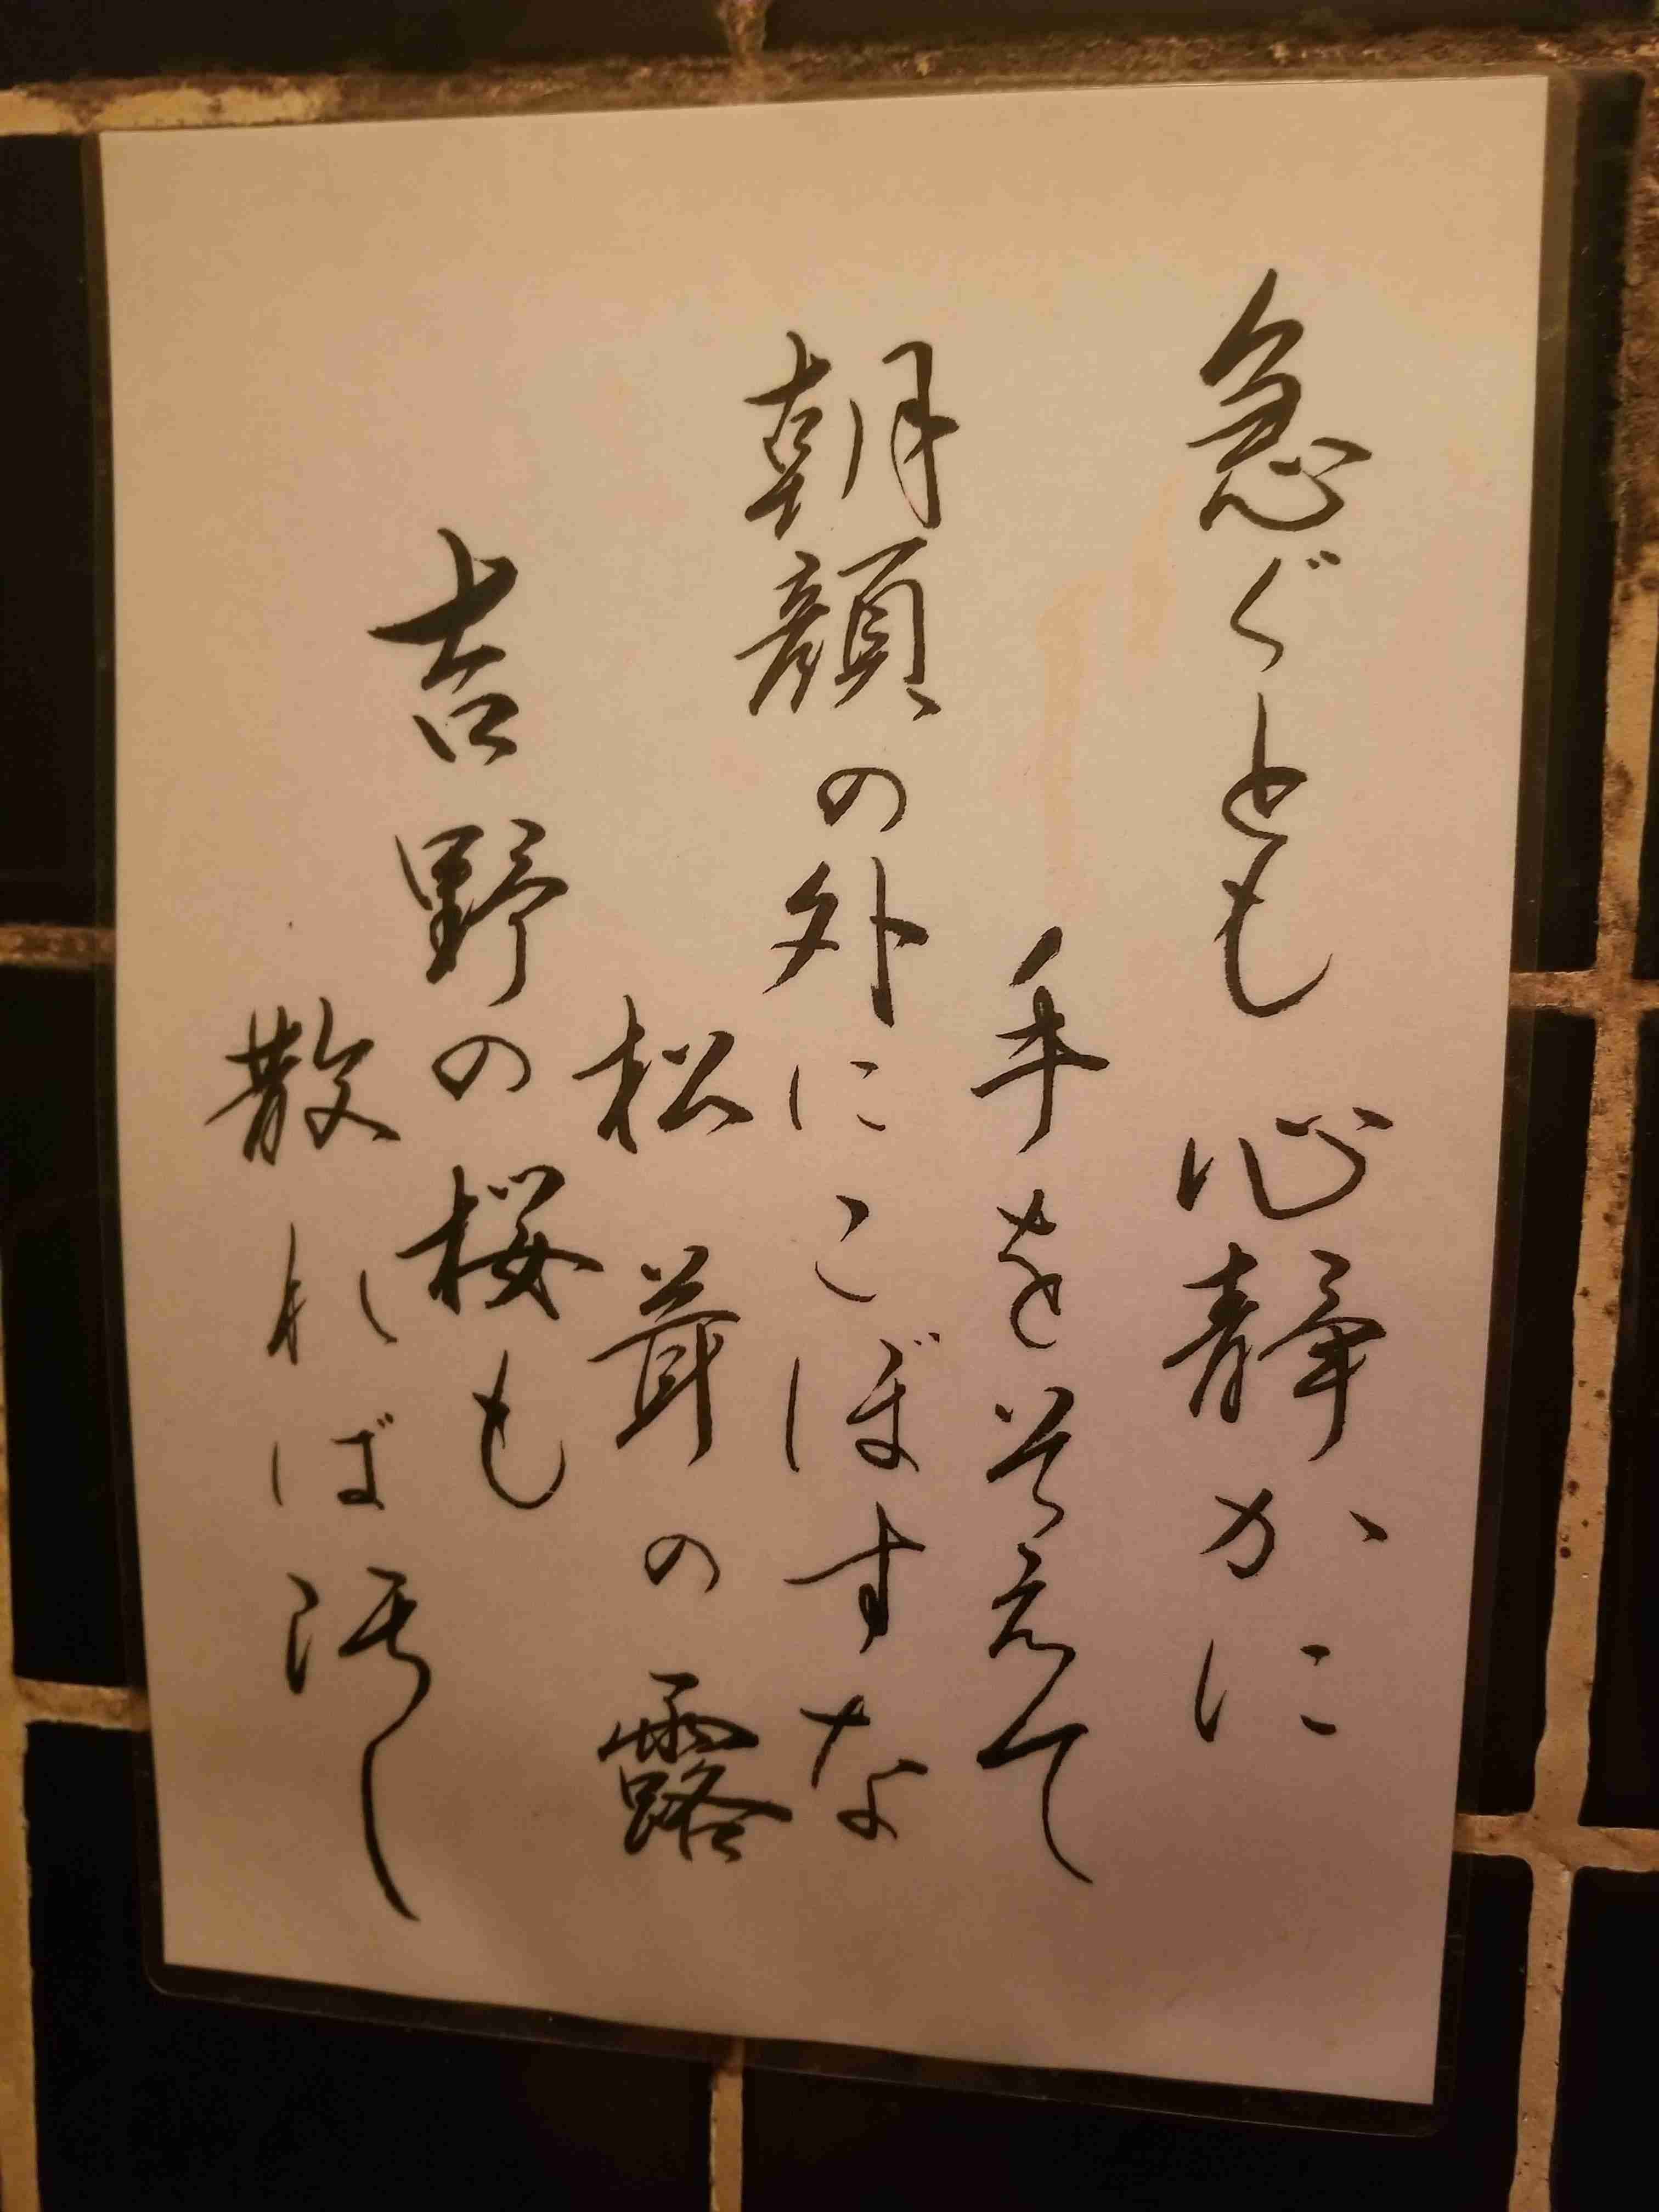 急ぐとも 心静かに
手を㐧えて
朝顔の外にこぼすな
松茸の露
吉野の桜も
散れば汚し